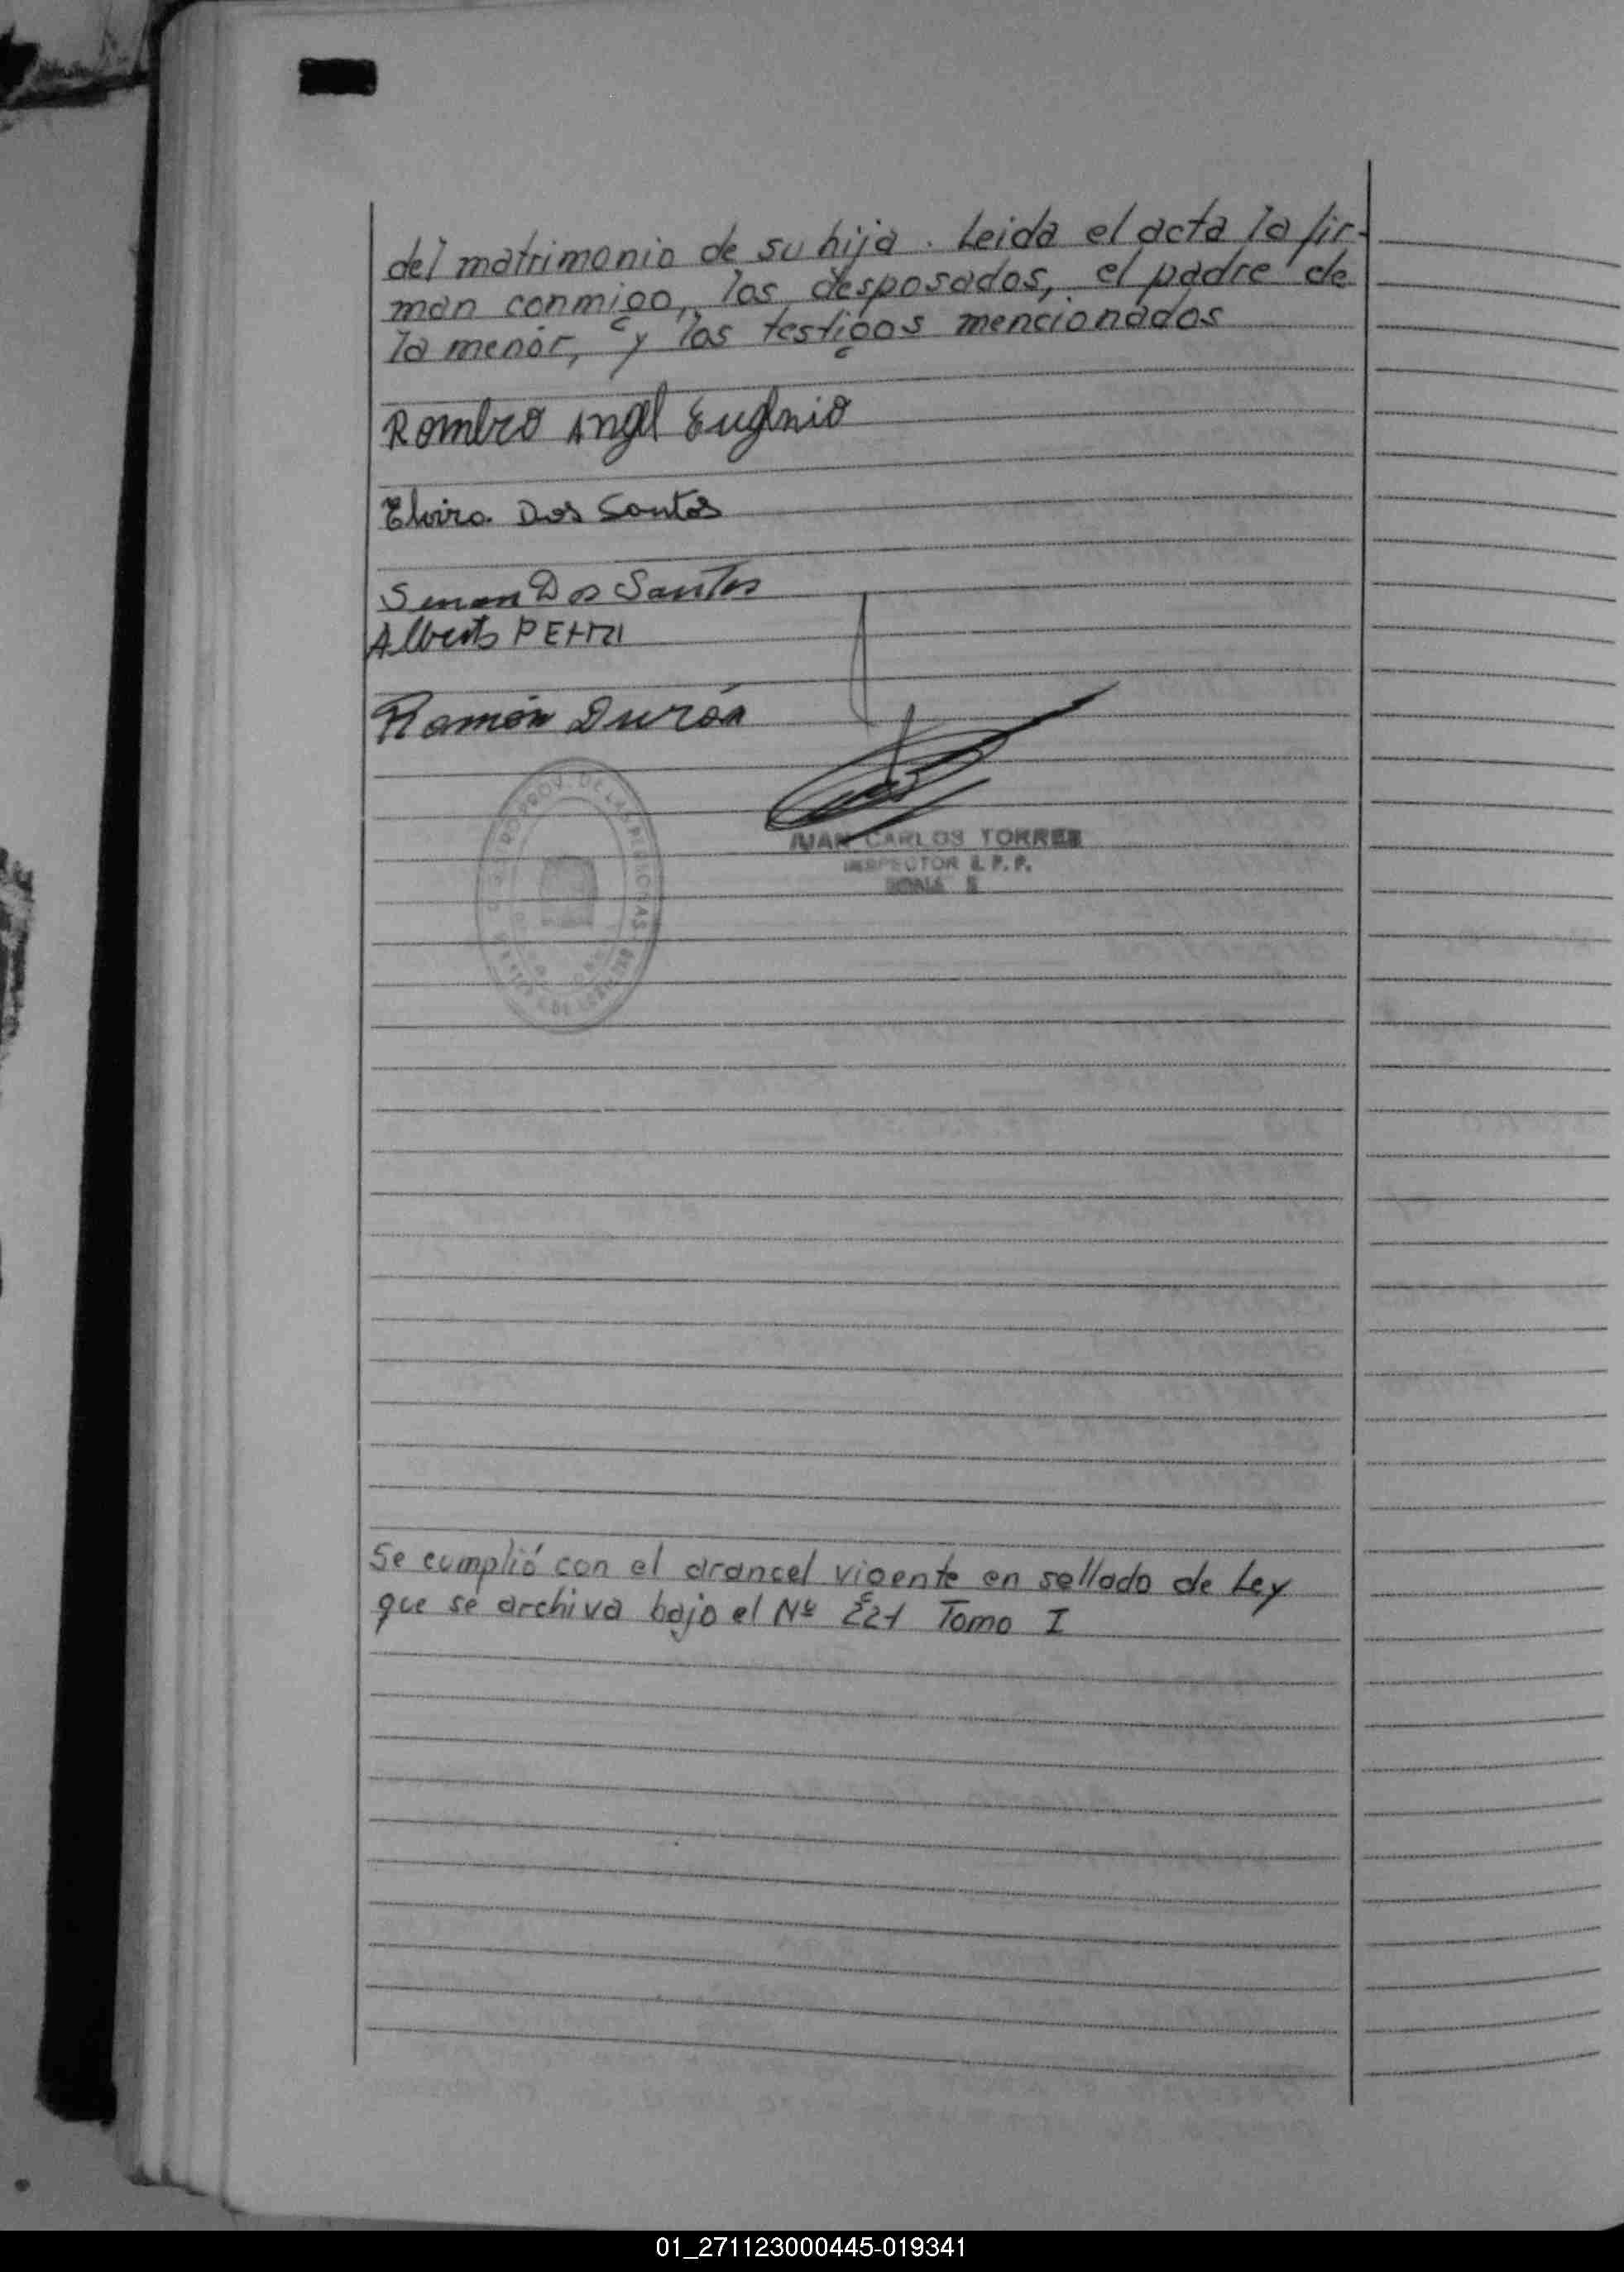 del matrimonio de su hija. Leida el acta la fir-
man conmigo, los desposados, el padre de
la menor, y los testigos mencionados
Romero Angel Eugenio
Elvira Dos Santos
Simon Dos Santos
Alberto PETRI
Ramón Durán
JUAN CARLOS TORRES
INSPECTOR R.P.P.
ZONA
Se cumplió con el arancel vigente en sellado de Ley
que se archiva bajo el Nº 221 Tomo I
01_271123000445-019341